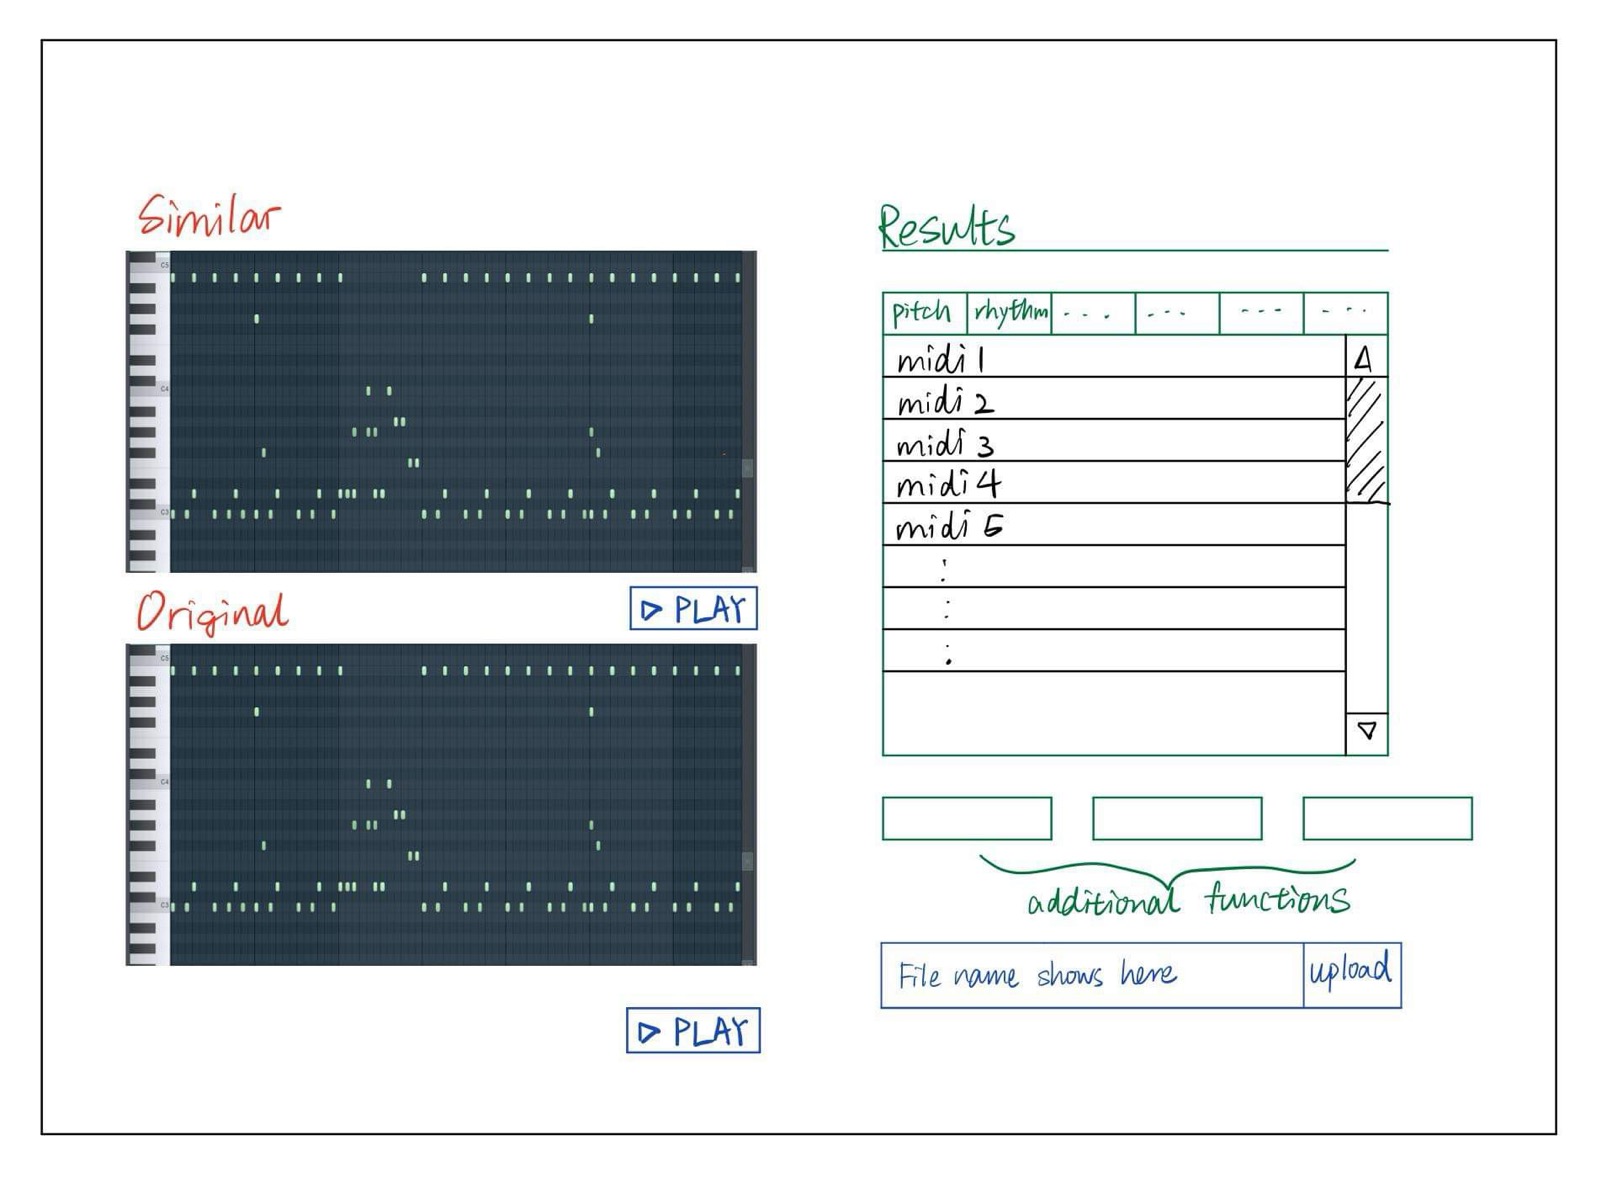 Similar
C5
C4
C3
▷ PLAY
Original
C5
C4
C3
▷ PLAY
Results
pitch rhythm ... --- --- ---
midi 1
midi 2
midi 3
midi 4
midi 5
:
:
:
additional functions
File name shows here upload